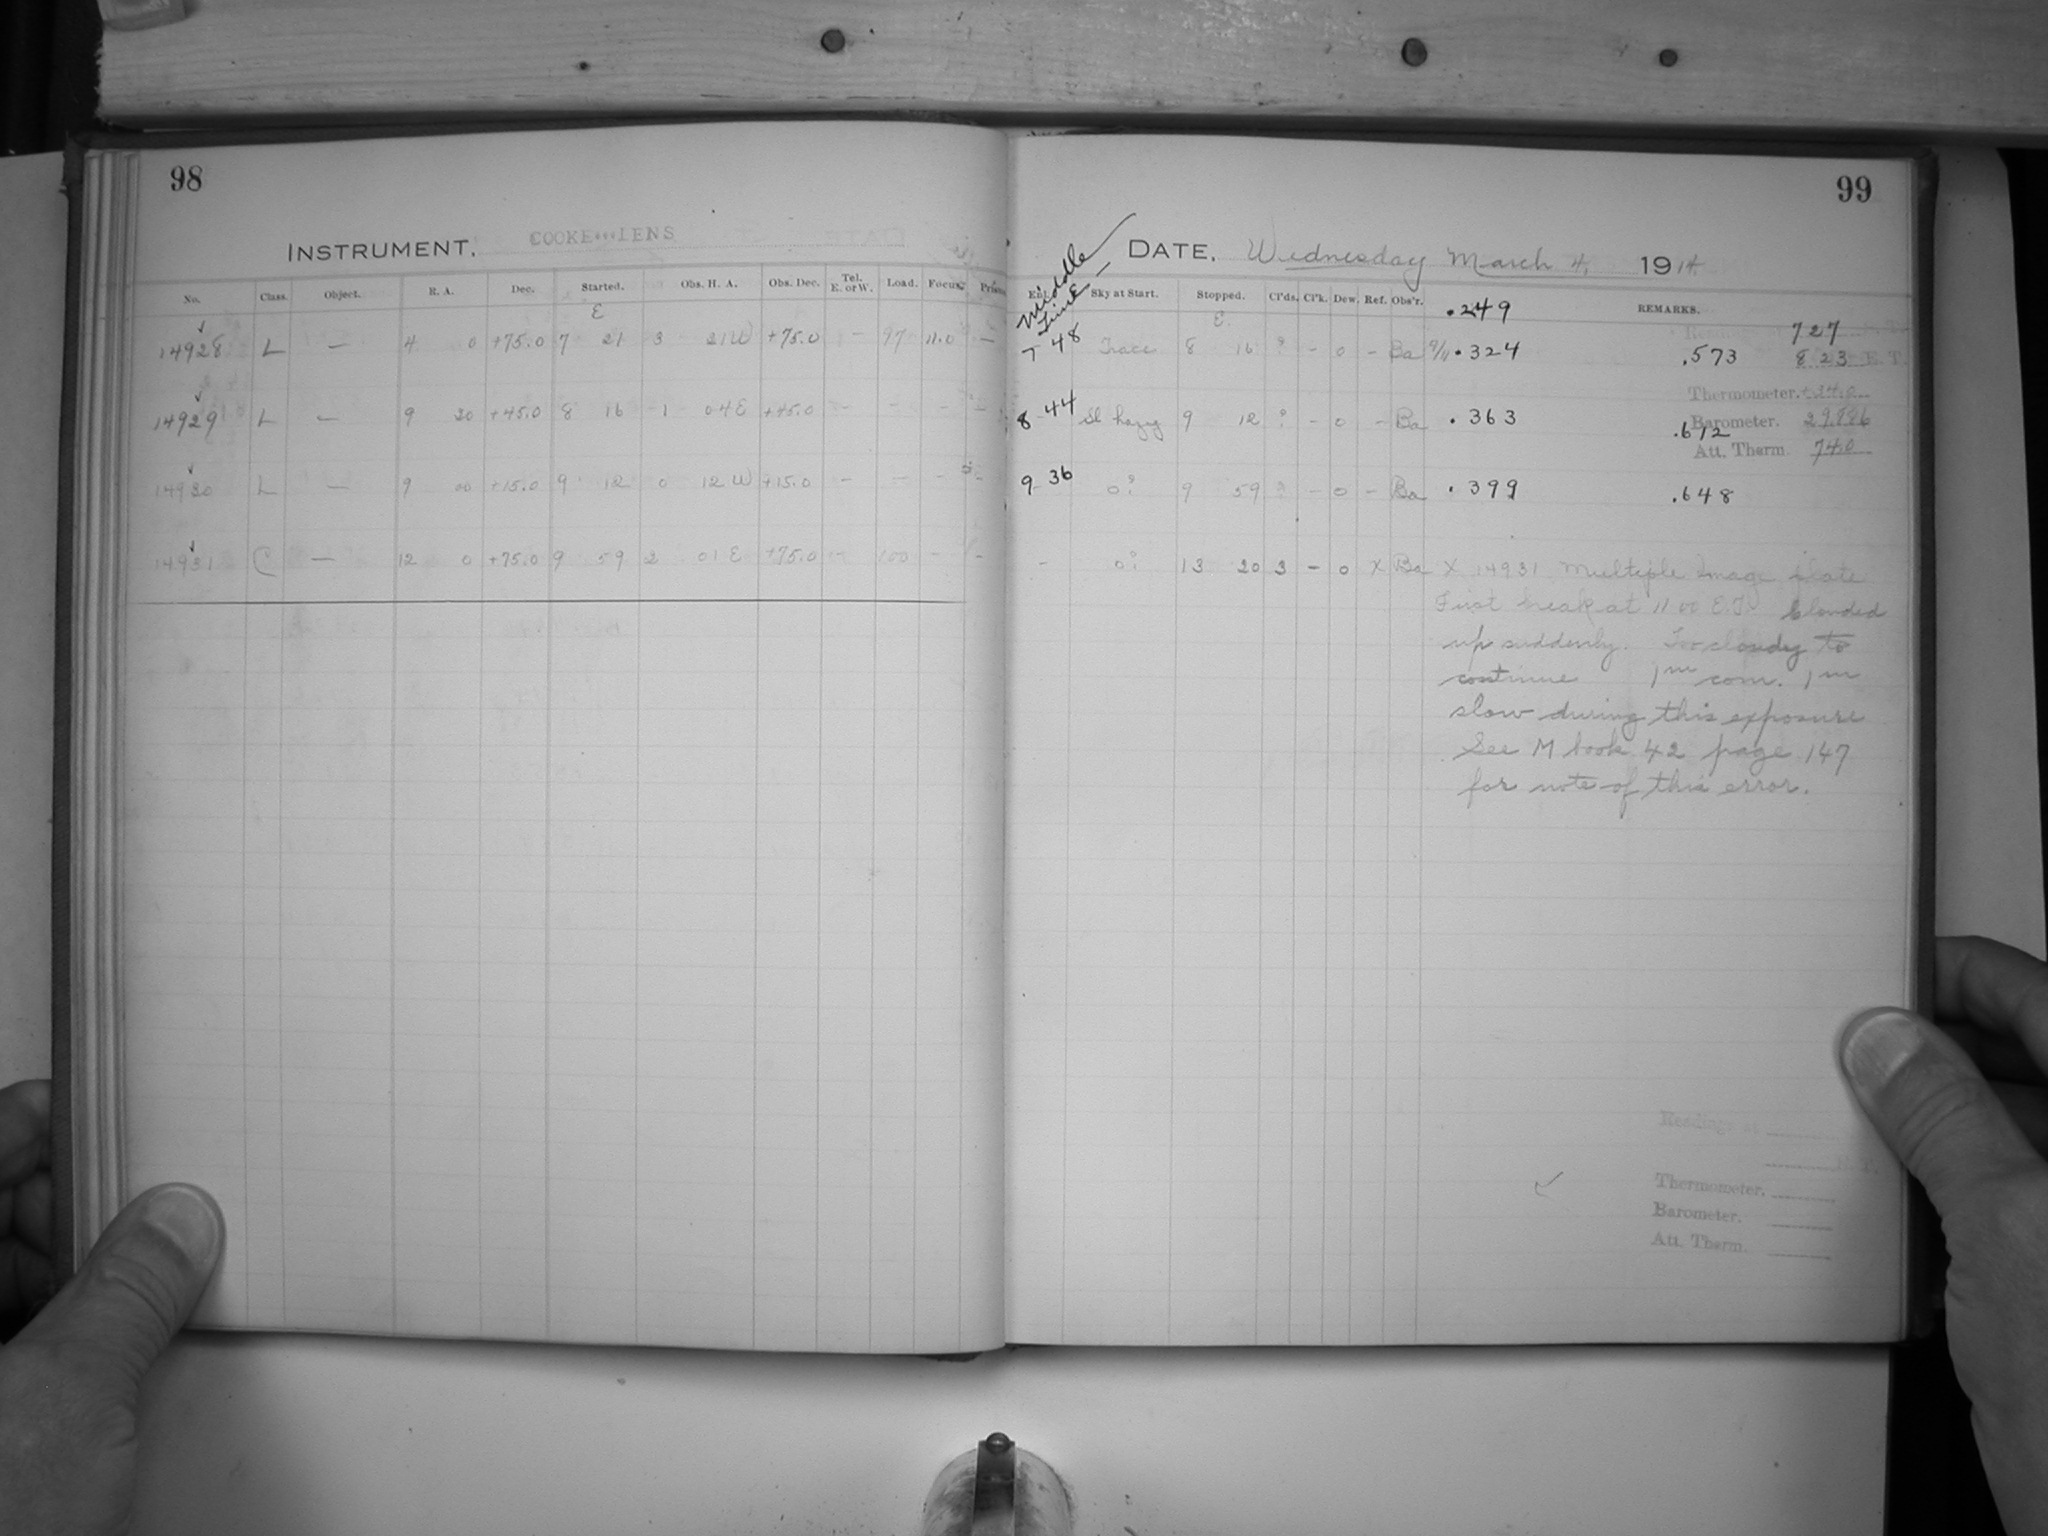 98
INSTRUMENT. COOKE LENS
No. Class. Object. R. A. Dec. Started. Obs. H. A. Obs. Dec. Tel. E. or W. Load. Focus.
E
14928 L — 4 0 +75.0 7 21 3 21 W +75.0 - 97 11.0 —
14929 L — 9 20 +45.0 8 16 1 04 E +45.0 - - - -
14930 L — 9 00 +15.0 9 12 0 12 W +15.0 - - - -
14931 C — 12 0 +75.0 9 59 2 01 E +75.0 - 100 - -
99
DATE. Wednesday March 4, 1914
Middle Time
Sky at Start. Stopped. Cl'ds. Cl'k. Dew. Ref. Obs'r. REMARKS.
E
.249
7 48 Trace 8 16 ? - 0 - Ba 9/11 .324 .573
727
823 E. T.
Thermometer. +34.0
8-44 Sl hazy 9 12 ? - 0 - Ba .363 .612
Barometer. 29.886
Att. Therm. 74.0
9 36 0? 9 59 ? - 0 - Ba .399 .648
- 0? 13 20 3 - 0 X Ba X 14931 Multiple Image plate
First break at 11 00 E.T. Clouded
up suddenly. Too cloudy to
continue 1m com. 1m
slow during this exposure
See M book 42 page 147
for note of this error.
Readings at
Thermometer.
Barometer.
Att. Therm.